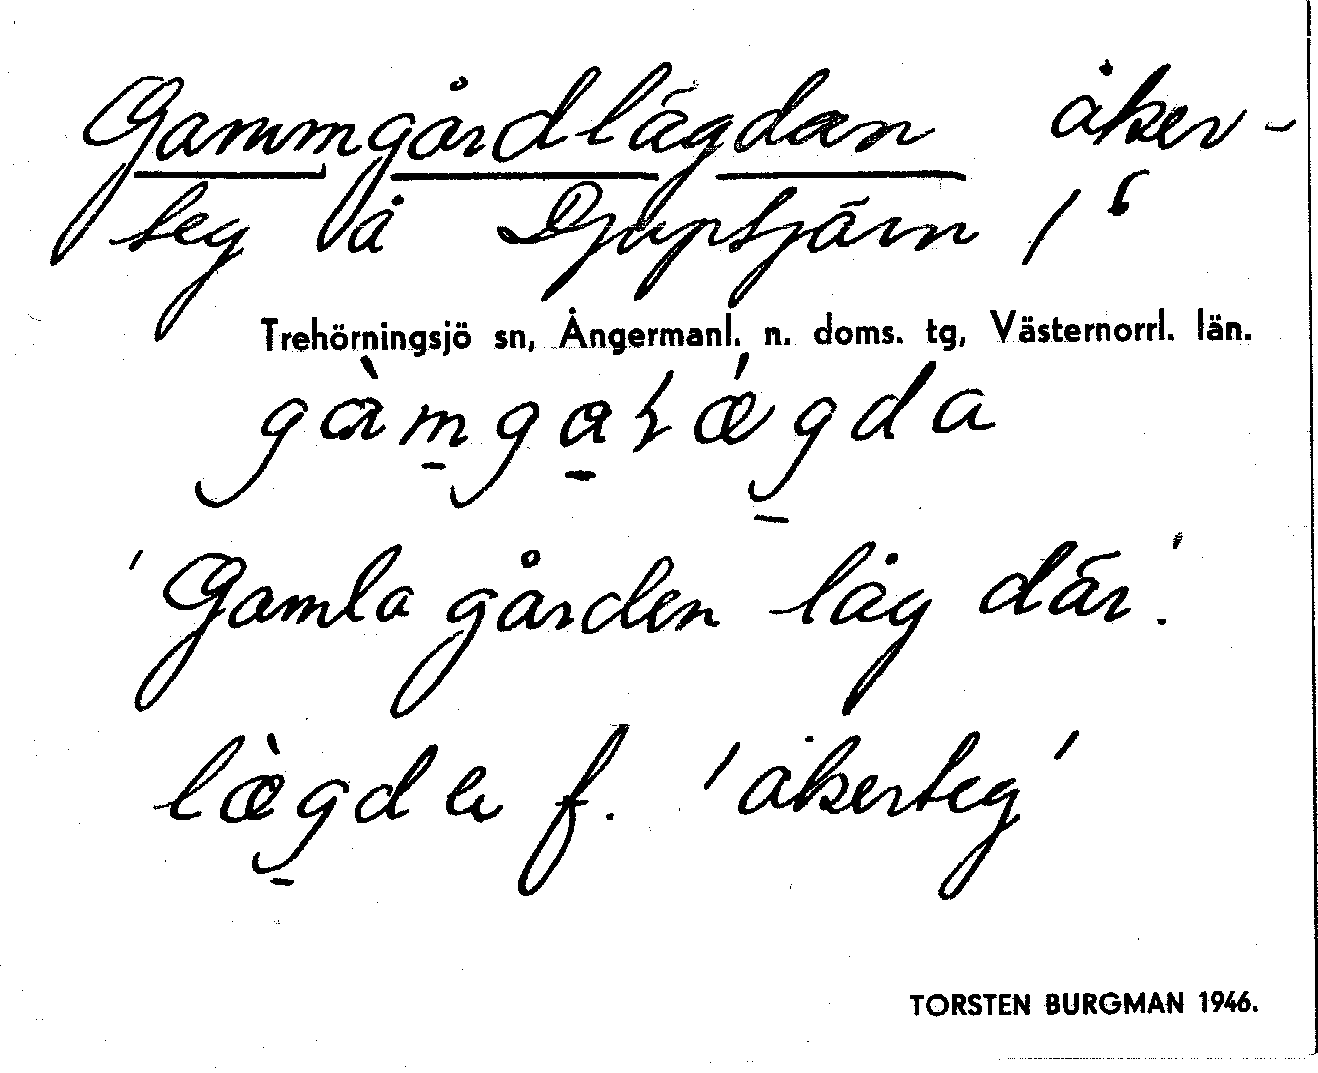 Gammgårdlägdan åker-
teg å Djuptjärn 1⁶
Trehörningsjö sn, Ångermanl. n. doms. tg, Västernorrl. län.
'Gamla gården låg där'.
lægda f. 'åkerteg'
TORSTEN BURGMAN 1946.